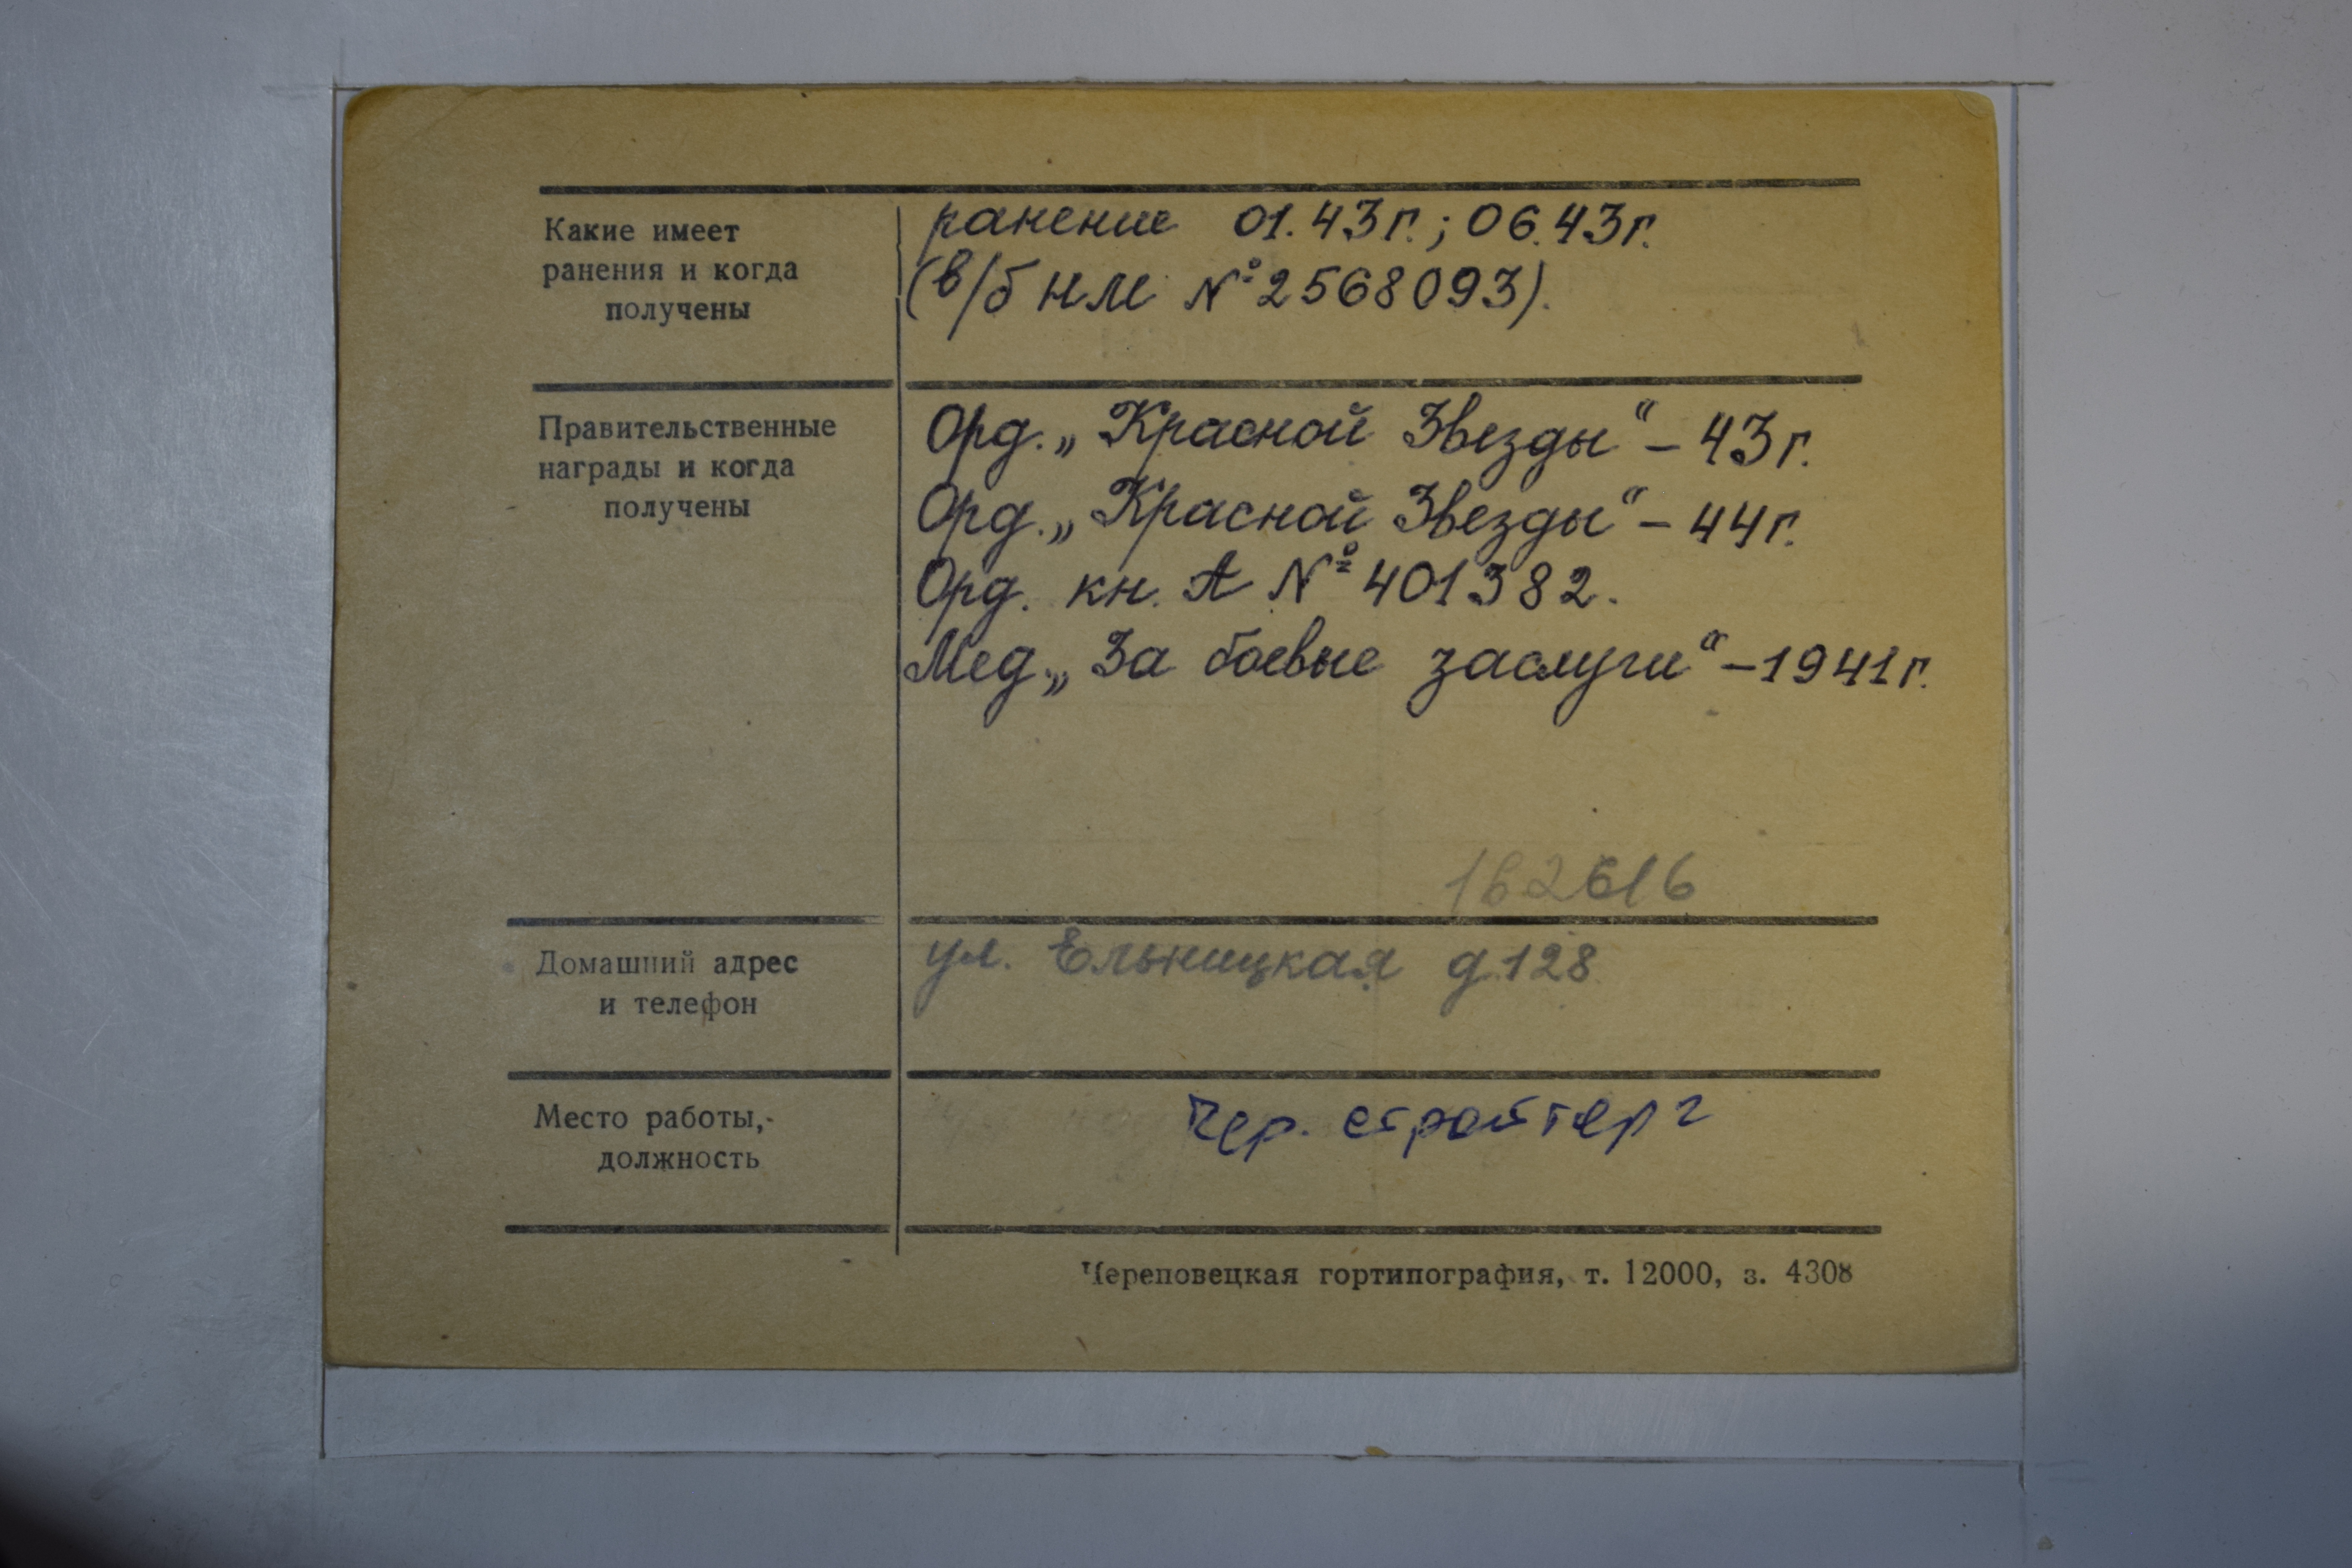 Какие имеет
ранения и когда
получены
ранение 01.43г.; 06.43г.
(в/б НЛ № 2568093).
Правительственные
награды и когда
получены
Орд. „Красной Звезды“ – 43г.
Орд. „Красной Звезды“ – 44г.
Орд. кн. А № 401382.
Мед. „За боевые заслуги“ – 1941г.
162616
Домашний адрес
и телефон
ул. Ельницкая д 128
Место работы,-
должность
Чер. стройтерг
Череповецкая гортипография, т. 12000, з. 4308